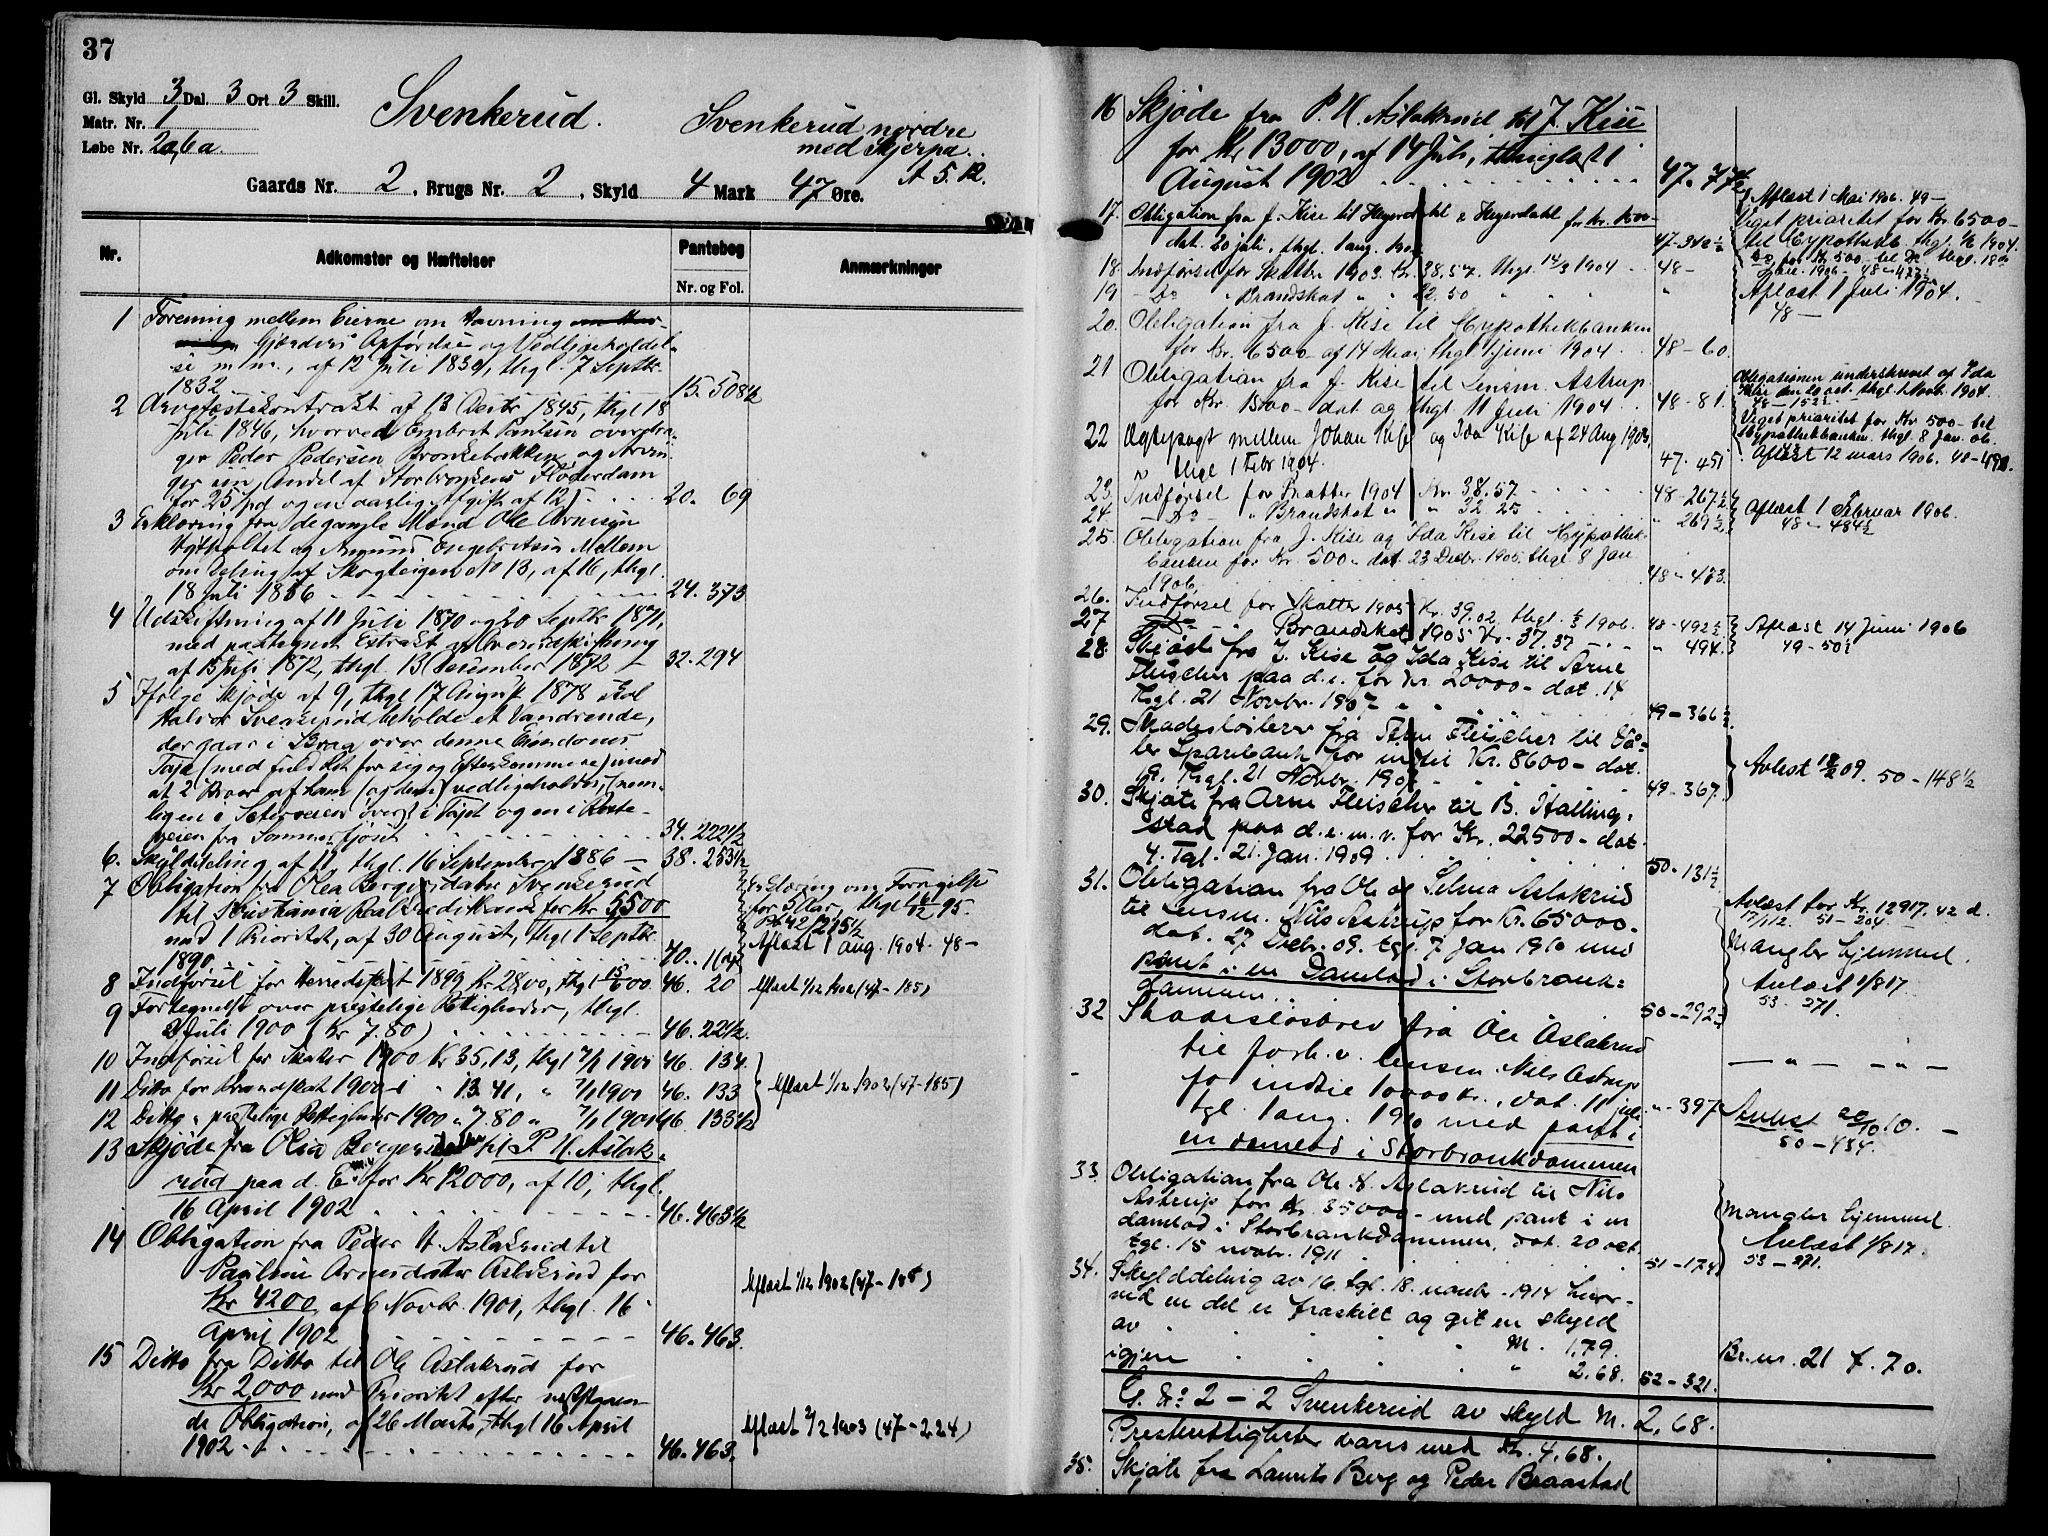 37
Gl. Skyld 3 Dal. 3 Ort 3 Skill.
Matr. Nr. 1
Løbe Nr. 2a, 6a.
Svenkerud.
Svenkerud nordre
med Skjerpa.
A 5. 12.
Gaards Nr. 2, Brugs Nr. 2, Skyld 4 Mark 47 Øre.
Nr.
Adkomster og Hæftelser
Pantebog
Nr. og Fol.
Anmærkninger
1 Forening mellem Eierne om Havning
Gjærders Opførelse og Vedligeholdel-
se m.m., af 12 Juli 1830, thgl. 7 Septbr.
1832 15. 508½
2 Arvefæstekontrakt af 13 1845, thgl 18
Juli 1846, hvorved Embret Paulsen overdra-
ger Peder Pedersen Bronkebakken og Arvin-
ger sin Andel af Storbronkens Fløderdam
for 25 Spd og en aarlig Afgift af 12 20. 69
3 Erklæring fra de gamle Mænd Ole Arnesen
og Amund Engebretsen Mellem
om Deling af Skogteigen No 13, af 16, thgl.
18 Juli 1856 24. 373
4 Udskiftning af 11 Juli 1870 og 20 Septbr 1871,
med paategnet Extrakt af Overudskiftning
af 15 Juli 1872, thgl. 13 December 1872 32. 294
5 Ifølge Skjøde af 9, thgl. 17 August 1878 skal
Halvor Svenkerud beholde et Vandrende,
der gaar i Braa over denne Eiendoms
Trøe (med fuld Ret for sig og Efterkommere) mod
at 2 Broer af ham (og dem) vedligeholdes, (nem-
ligen i Seterveien øverst i Trøet og en i Rute-
veien fra Sommerfjøset 34. 222½
6. Skylddeling af 11, thgl. 16 September 1886 38. 253½
7 Obligation fra Olea Bergersdatter Svenkerud
til Kristiania Realkreditbank for Kr 5500
med 1 Prioritet, af 30 August, thgl 1 Septbr.
1890 40. 164
Erklæring om Forrigelse
for 5 Aar, thgl 95.
Pb 42/215½
Aflæst 1 aug. 1904. 48-
8 Indførsel for Herredsskat 1899 Kr 28,00, thgl 00. 46. 20
Aflæst 1/12 1902 (47-185)
9 Fortegnelse over prestelige Rettigheder, thgl.
2 Juli 1900 (Kr 7.80) 46. 221½
10 Indførsel for Skatter 1900 Kr 35,13, thgl 7/1 1901 46. 134.
11 Ditto for Brandskat 1900 " 13.41, " 7/1 1901 46. 133
12 Ditto " prestelige Rettigheder 1900 " 7.80 " 7/1 1901 46. 133½
Aflæst 1/12 1902 (47-185)
13 Skjøde fra Olea Bergersdatter til P. H. Aslak-
rud paa d. E. for Kr 12000, af 10, thgl.
16 April 1902 46. 463½
14 Obligation fra Peder H. Aslakrud til
Pauline Arnesdatter Aslakrud for
Kr 4200, af 6 Novbr. 1901, thgl. 16
April 1902 46. 463.
Aflæst 1/12 1902 (47-185)
15 Ditto fra Ditto til Ole Aslakrud for
Kr 2000 med Prioritet efter næstforegaaen-
de Obligation, af 26 Marts, thgl 16 April
1902 46. 463.
Aflæst 2/2 1903 (47-224)
16 Skjøde fra P. H. Aslakrud til J. Kise
for Kr 13000, af 14 Juli, thinglæst 1
August 1902 47. 77½
17. Obligation fra J. Kise til Heyerdahl & Heyerdahl for Kr. 1500-
dat. 30 juli, thgl. 1 aug. 1902 47-340½
Aflæst 1 Mai 1906. 49-
Viget prioritet for Kr. 6500-
til Hypothekb. thgl. 1/6 1904.
Do for Kr 500- til Do thgl. 18
Jan. 1906 - 48-473½
18. Indførsel for Skatter 1903. Kr. 38.57. thgl. 14/3 1904 48-
19 - Do - " Brandskat " " 22.50 "
Aflæst 1 Juli 1904.
48-
20. Obligation fra J. Kise til Hypothekbanken
for Kr. 6500- af 14 Mai, thgl. 1 juni 1904 48-60.
21 Obligation fra J. Kise til Lensm. Astrup
for Kr. 1500- dat og thgl. 11 Juli 1904. 48-81.
Obligationen underskrevet af Ida
Kise den 20 oct. thgl. 1 Novb. 1904.
48-152½
Viget prioritet for Kr 500- til
Hypothekbanken. thgl. 8 Jan. 06.
Aflæst 12 mars 1906. 48-498.
22 Ægtepagt mellem Johan Kise og Ida Kise af 24 Aug 1903,
thgl 1 Febr 1904. 47. 451
23. Indførsel for Skatter 1904 Kr. 38.57. 48-267½
24. - Do - " Brandskat " " 32.25 " 269½
Aflæst 1 Februar 1906.
48-484½
25. Obligation fra J. Kise og Ida Kise til Hypothek-
banken for Kr 500- dat. 23 Decbr. 1905. thgl. 8 Jan
1906 48-473.
26. Indførsel for Skatter 1905 Kr. 39.02. thgl. 1906. 48-492½
27 Do " Brandskat 1905 Kr. 37.37 " 494.
Aflæst 14 Juni 1906
49-50½
28 Skjøde fra J. Kise og Ida Kise til Arne
Fleischer paa d.e. for Kr. 20000- dat. 14
thgl. 21 Novbr. 1907 49-366½
29. Skadesløsbrev fra Arne Fleischer til Vaa-
ler Sparebank for indtil Kr. 8600- dat.
9. thgl. 21 Novbr. 1907 49-367.
Avlæst 09. 50-148½
30. Skjøte fra Arne Fleischer til B. Halling-
stad paa d.e.m.v. for Kr. 22500- dat.
4. Tgl. 21. Jan. 1909. 50-131½
31. Obligation fra Ole og Selma Aslakrud
til Lensm. Nils Astrup for Kr. 65000-
dat. 27 Decbr. 09. tgl. 7 Jan 1910 med
pant i en Damlod i Storbronk-
dammen 50-292½
Avlæst for Kr. 12917.42 d.
17/1 12. 51-204.
Mangler hjemmel.
Avlæst 1/8 17.
53-271.
32 Skadesløsbrev fra Ole Aslakrud
til forh.v. lensm. Nils Astrup
for indtil 10000 kr., dat. 11 juli
tgl. 1 aug. 1910 med pant i
en damlod i Storbronkdammen
" - 397
— " — " —
Avlæst 20/10 10.
50-434.
33. Obligation fra Ole S. Aslakrud til Nils
Astrup for Kr. 35000- med pant i en
damlod i Storbronkdammen, dat. 20 oct.
tgl. 15 novbr. 1911 51-174
Mangler hjemmel.
Avlæst 1/8 17.
53-271.
34. Skylddeling av 16. tgl. 18. novbr. 1914 hvor-
ved en del er fraskilt og git en skyld
av M. 1,79.
igjen " 2.68. 52-321.
Br. nr. 21 f. 70.
G. No 2-2 Svenkerud av skyld M. 2,68.
Presterettigheter svares med Kr. 4.68.
35. Skjøte fra Laurits Berg og Peder Braastad